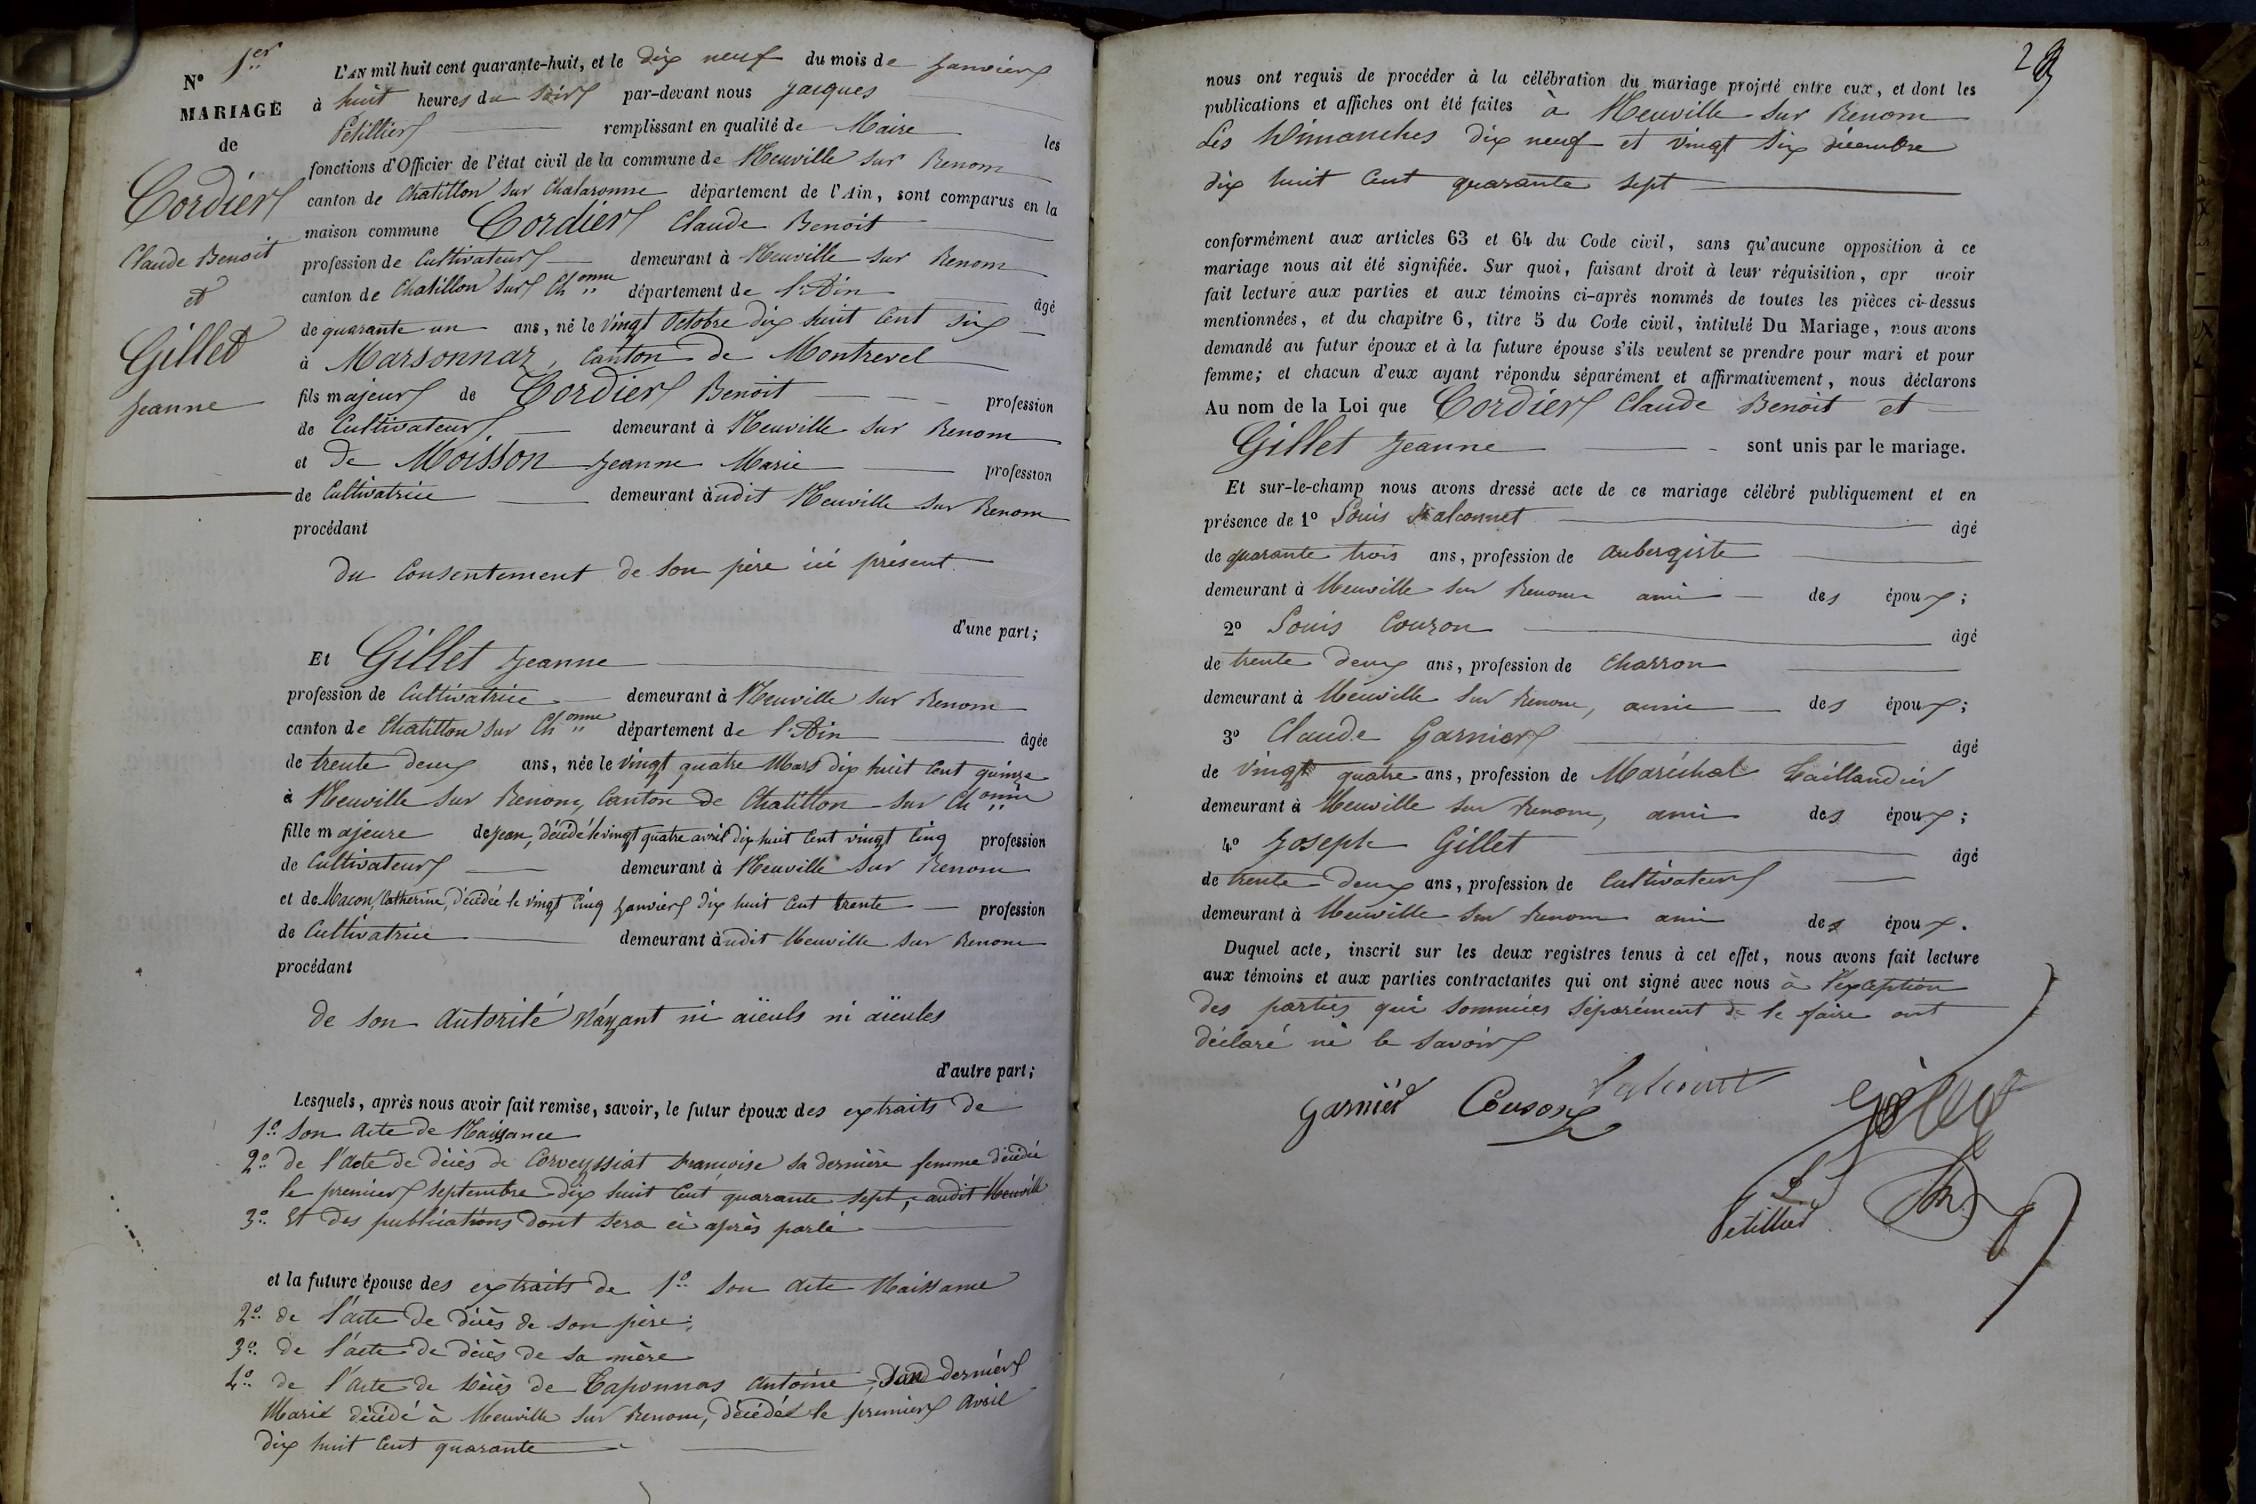 N° 1er
MARIAGE
de
Cordier
Claude Benoit
et
Gillet
Jeanne
L'AN mil huit cent quarante-huit, et le dix neuf du mois de Janvier
à huit heures du soir par-devant nous Jacques
Petillier remplissant en qualité de Maire les
fonctions d'Officier de l'état civil de la commune de Neuville sur Renom
canton de Chatillon sur Chalaronne département de l'Ain, sont comparus en la
maison commune Cordier Claude Benoit
profession de Cultivateur demeurant à Neuville sur Renom
canton de Chatillon sur Chonne département de l'Ain âgé
de quarante un ans, né le vingt Octobre dix huit cent six
à Marsonnaz, Canton de Montrevel
fils majeur de Cordier Benoit profession
de Cultivateur demeurant à Neuville sur Renom
et de Moisson Jeanne Marie profession
de Cultivatrice demeurant àudit Neuville sur Renom
procédant
du Consentement de son père ici présent
d'une part;
Et Gillet Jeanne
profession de Cultivatrice demeurant à Neuville sur Renom
canton de Chatillon sur Chonne département de l'Ain âgée
de trente deux ans, née le vingt quatre Mars dix huit cent quinze
à Neuville sur Renom, Canton de Chatillon sur Chonne
fille majeure de Jean, décédé le vingt quatre avril dix huit cent vingt cinq profession
de Cultivateur demeurant à Neuville sur Renom
et de Macon Catherine, décédée le vingt cinq Janvier dix huit cent trente profession
de Cultivatrice demeurant àudit Neuville sur Renom
procédant
de son autorité n'ayant ni aïeuls ni aïeules
d'autre part;
Lesquels, après nous avoir fait remise, savoir, le futur époux des extraits de
1° son acte de Naissance
2° de l'acte de décès de Corveyssiat Francoise sa dernière femme décédée
le premier septembre dix huit cent quarante sept, audit Neuville
3° Et des publications dont sera ci après parlé
et la future épouse des extraits de 1° son acte Naissance
2° de l'acte de décès de son père;
3° de l'acte de décès de sa mère
4° de l'acte de décès de Taponnas Antoine, son dernier
Marie décédé à Neuville sur Renom, décédé le premier Avril
dix huit cent quarante
2
nous ont requis de procéder à la célébration du mariage projeté entre eux, et dont les
publications et affiches ont été faites à Neuville sur Renom
Les Dimanches dix neuf et vingt six décembre
dix huit cent quarante sept
conformément aux articles 63 et 64 du Code civil, sans qu'aucune opposition à ce
mariage nous ait été signifiée. Sur quoi, faisant droit à leur réquisition, apr avoir
fait lecture aux parties et aux témoins ci-après nommés de toutes les pièces ci-dessus
mentionnées, et du chapitre 6, titre 5 du Code civil, intitulé Du Mariage, nous avons
demandé au futur époux et à la future épouse s'ils veulent se prendre pour mari et pour
femme; et chacun d'eux ayant répondu séparément et affirmativement, nous déclarons
Au nom de la Loi que Cordier Claude Benoit et
Gillet Jeanne sont unis par le mariage.
Et sur-le-champ nous avons dressé acte de ce mariage célébré publiquement et en
présence de 1° Louis Falconnet âgé
de quarante trois ans, profession de aubergiste
demeurant à Neuville sur Renom ami des époux;
2° Louis Couzon âgé
de trente deux ans, profession de Charron
demeurant à Neuville sur Renom, ami des époux;
3° Claude Garnier âgé
de vingt quatre ans, profession de Maréchal Taillandier
demeurant à Neuville sur Renom, ami des époux;
4° Joseph Gillet âgé
de trente deux ans, profession de Cultivateur
demeurant à Neuville sur Renom ami des époux.
Duquel acte, inscrit sur les deux registres tenus à cet effet, nous avons fait lecture
aux témoins et aux parties contractantes qui ont signé avec nous à l'exception
des parties qui sommées séparément de le faire ont
déclaré ne le savoir
Garnier Couson Gillet
Petillier